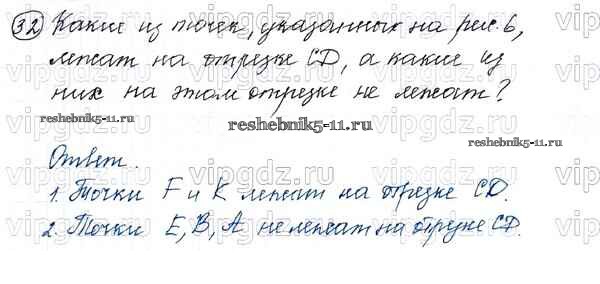 32) Какие из точек, указанных на рис. 6,
лежат на отрезке CD, а какие из
них на этом отрезке не лежат?
reshebnik5-11.ru
reshebnik5-11.ru
Ответ.
1. Точки F и K лежат на отрезке CD.
2. Точки E, B, A не лежат на отрезке CD.